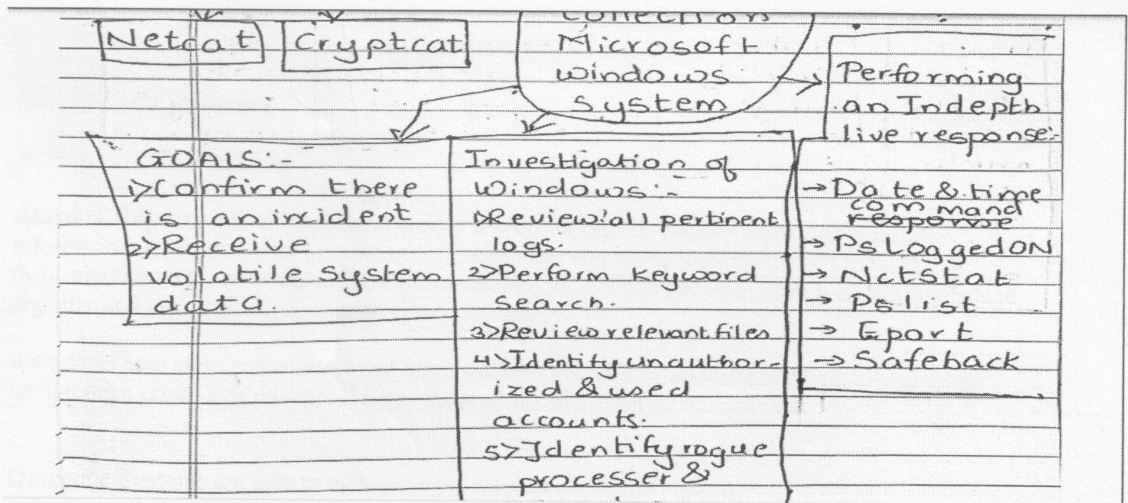 Netcat
Cryptcat
Collection
Microsoft
windows
System
Performing
an Indepth
live response:-
GOALS:-
1>Confirm there
is an incident
2>Receive
volatile System
data.
Investigation of
windows:-
1>Review all pertinent
logs.
2>Perform Keyword
Search.
3>Review relevant files
4>Identify unauthor-
ized & used
accounts.
5>Identify rogue
processer &
→Date & time
command
response
→PsLoggedON
→NetStat
→Pslist
→Eport
→Safeback